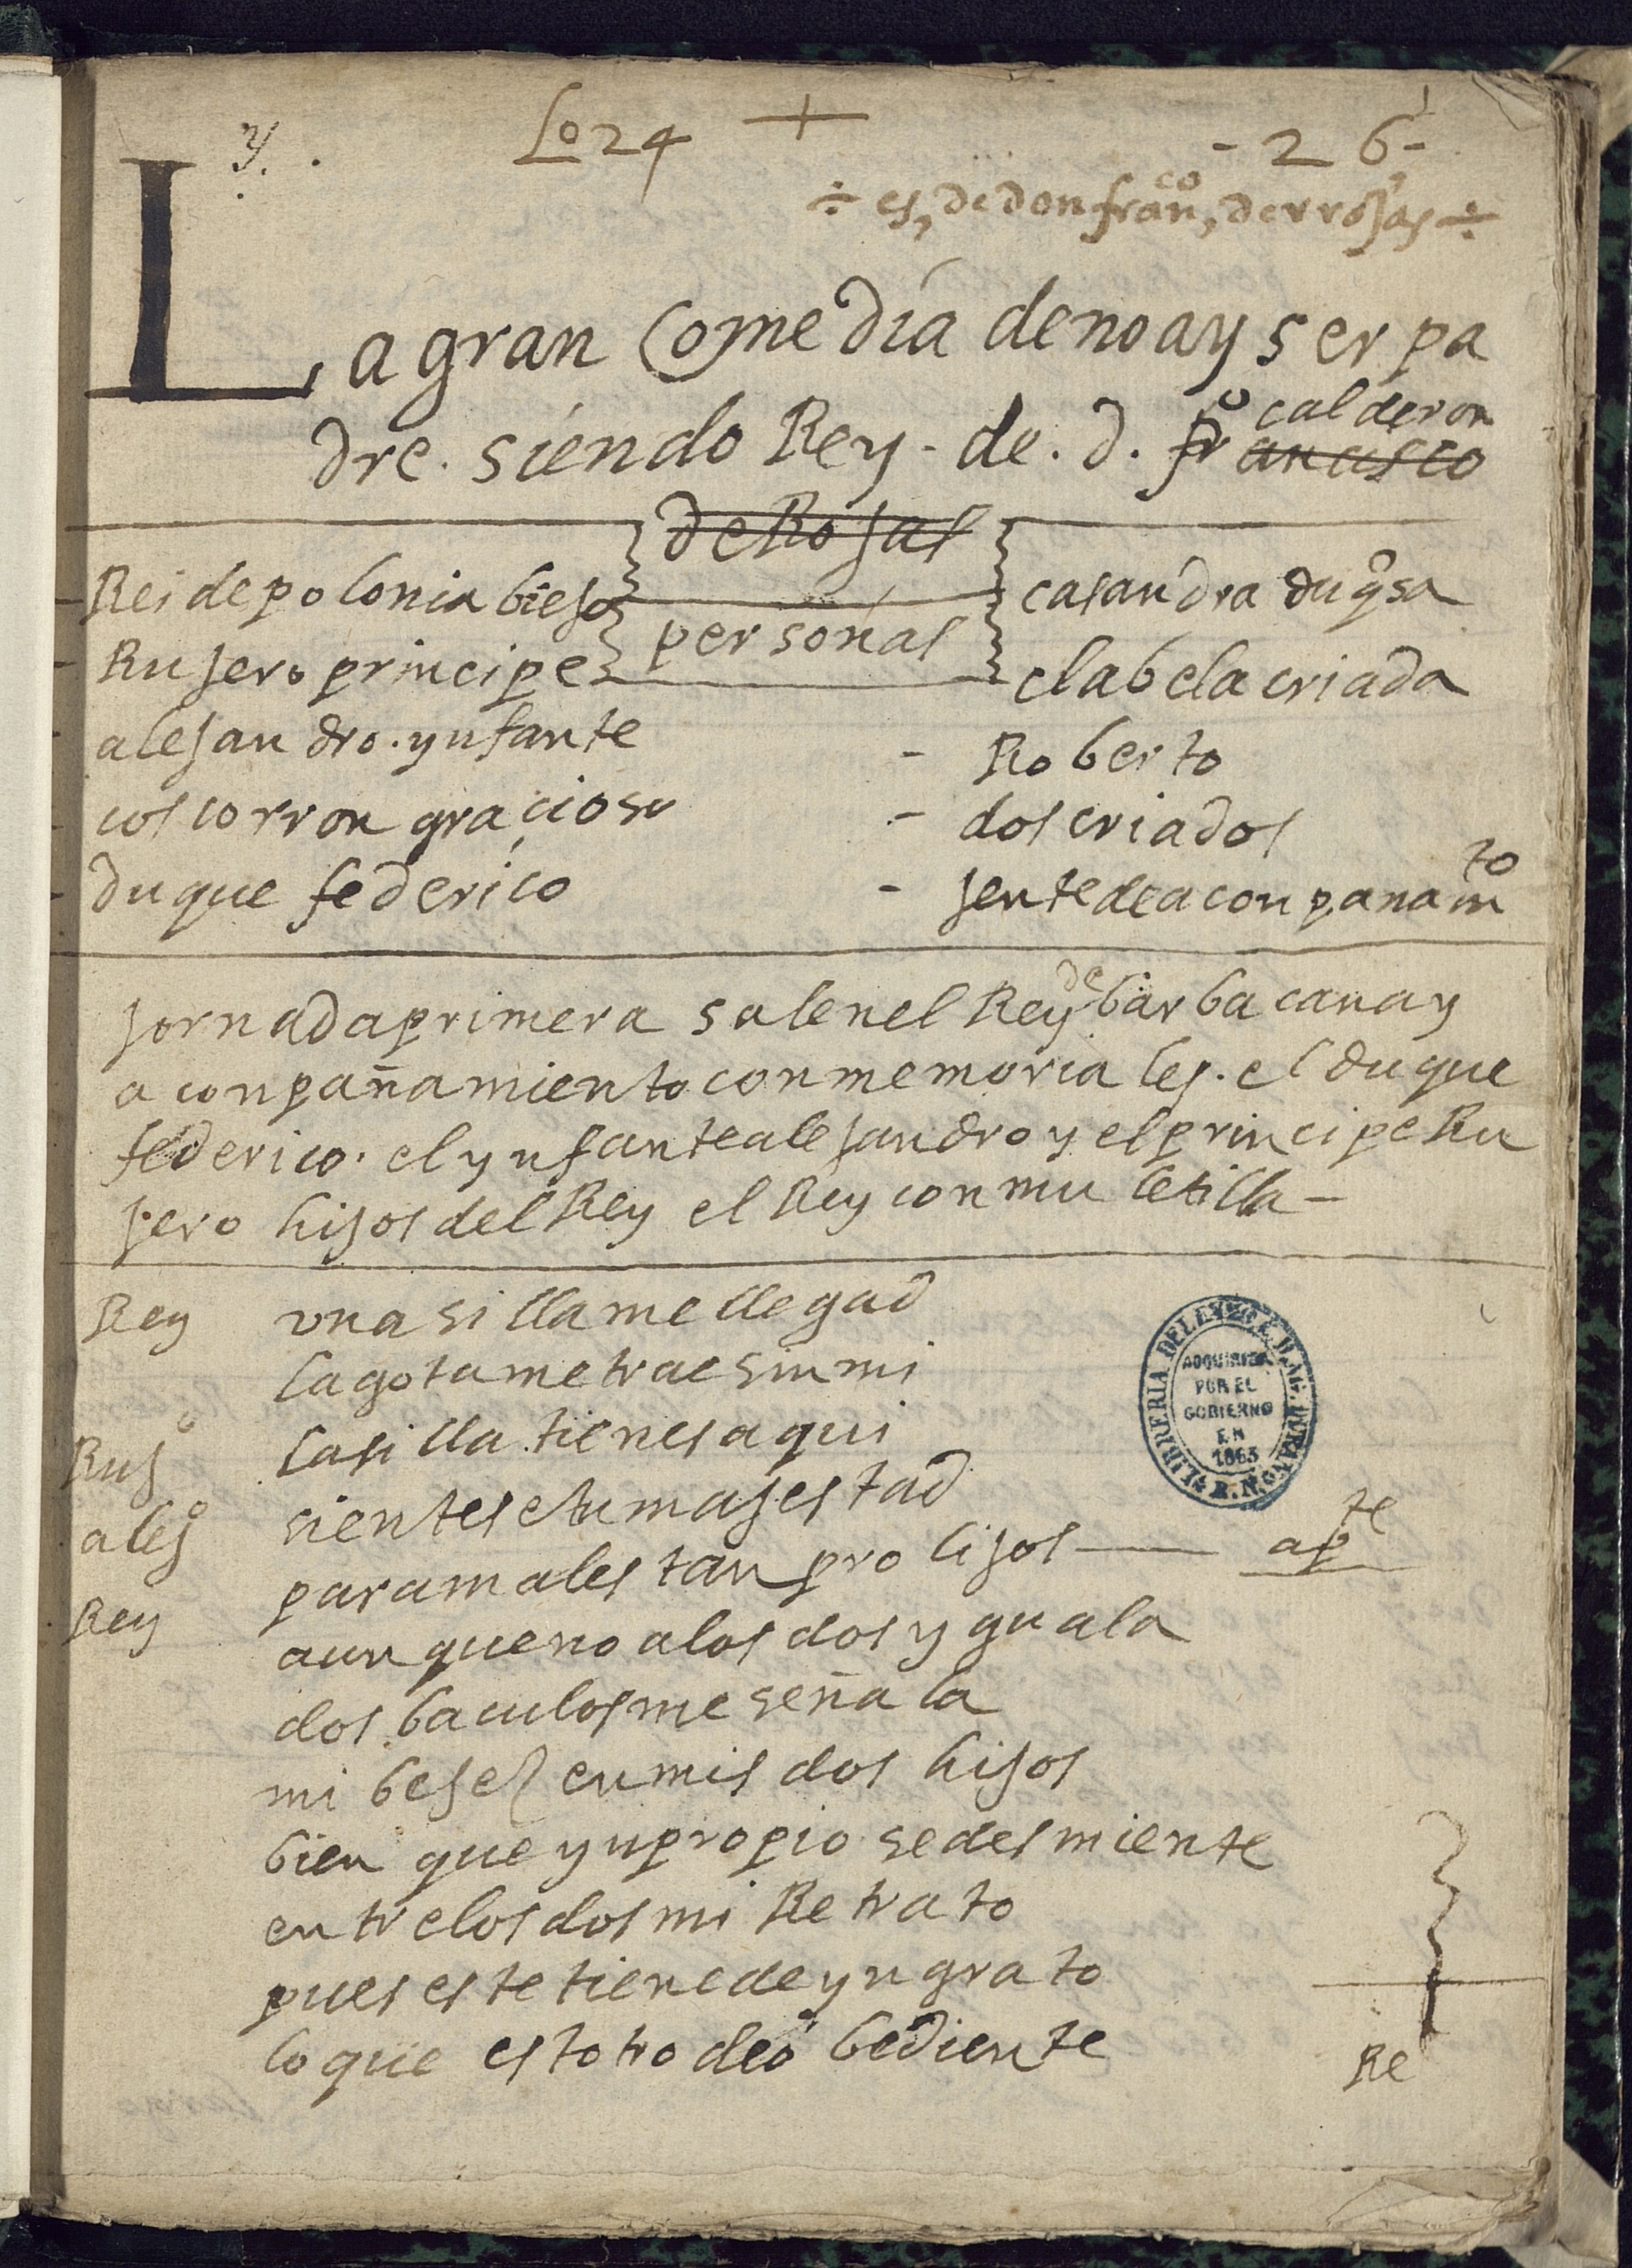 Lo 24 + - 26 -
÷ es, de don fran^co, de rrojas ÷
La gran Comedia de no ay ser pa
dre. siendo Rey - de. d. fr^o calderon
ancisco
de Rojas
personas
Rei de polonia biejo
Rujero principe
alejandro. ynfante
coscorron gracioso
duque federico
casandra duq^sa
clabela criada
- Roberto
- dos criados
- jente de aconpanam^to
jornada primera salen el Rey de barba cana y
aconpañamiento con memoriales. el duque
federico. el ynfante alejandro y el principe Ru
jero hijos del Rey el Rey con muletilla -
Rey una silla me llegad
la gota me trae sin mi
Ruj^o la silla tienes aqui
alej^o sientese tu majestad
Rey para males tan prolijos — ap^te
aunque no a los dos yguala
dos baculos me señala
mi bejez en mis dos hijos
bien que ynpropio se desmiente
entre los dos mi Retrato
pues este tiene de yngrato
lo que estotro de obediente
Re
LIBRERIA DEL EXMO. S. D. AG. DURAN
ADQUIRIDA
POR EL
GOBIERNO
EN
1863
B. N.